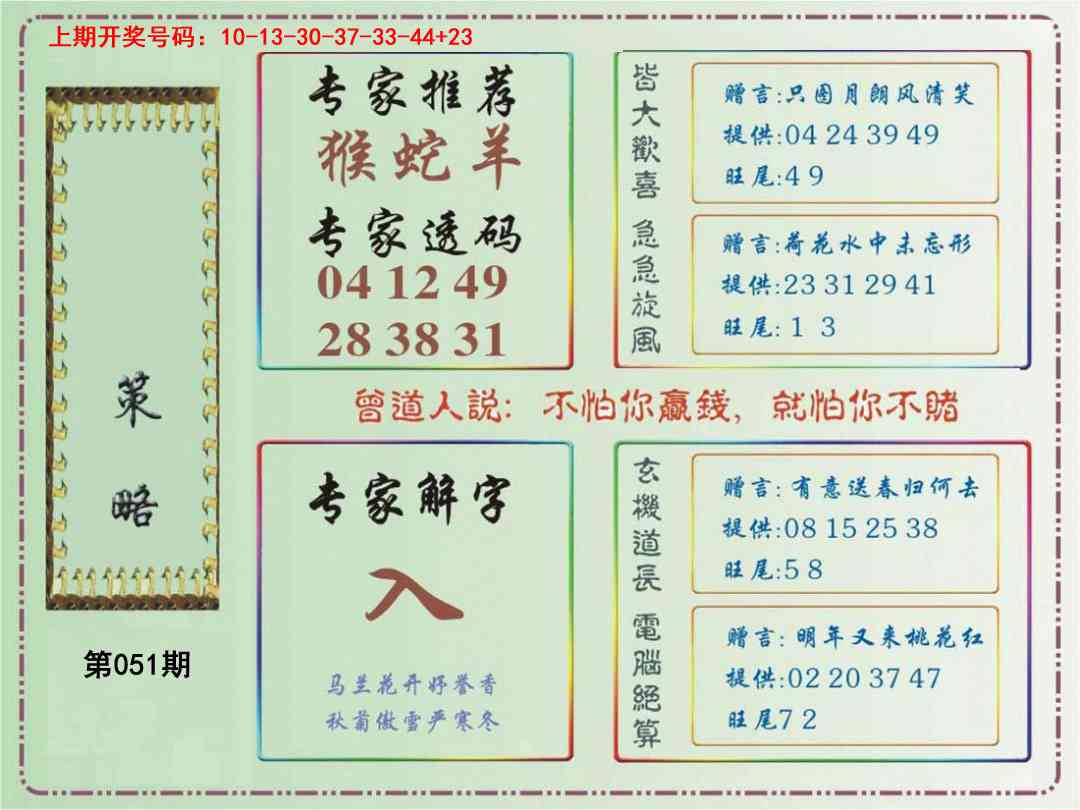 上期开奖号码：10-13-30-37-33-44+23
策略
第051期
专家推荐
猴蛇羊
专家透码
04 12 49
28 38 31
皆大歡喜
赠言:只图月朗风清笑
提供:04 24 39 49
旺尾:4 9
急急旋風
赠言:荷花水中未忘形
提供:23 31 29 41
旺尾:1 3
曾道人説：不怕你赢錢，就怕你不賭
专家解字
入
马兰花开好誉香
秋菊傲雪严寒冬
玄機道長
赠言:有意送春归何去
提供:08 15 25 38
旺尾:5 8
電腦絕算
赠言:明年又来桃花红
提供:02 20 37 47
旺尾7 2